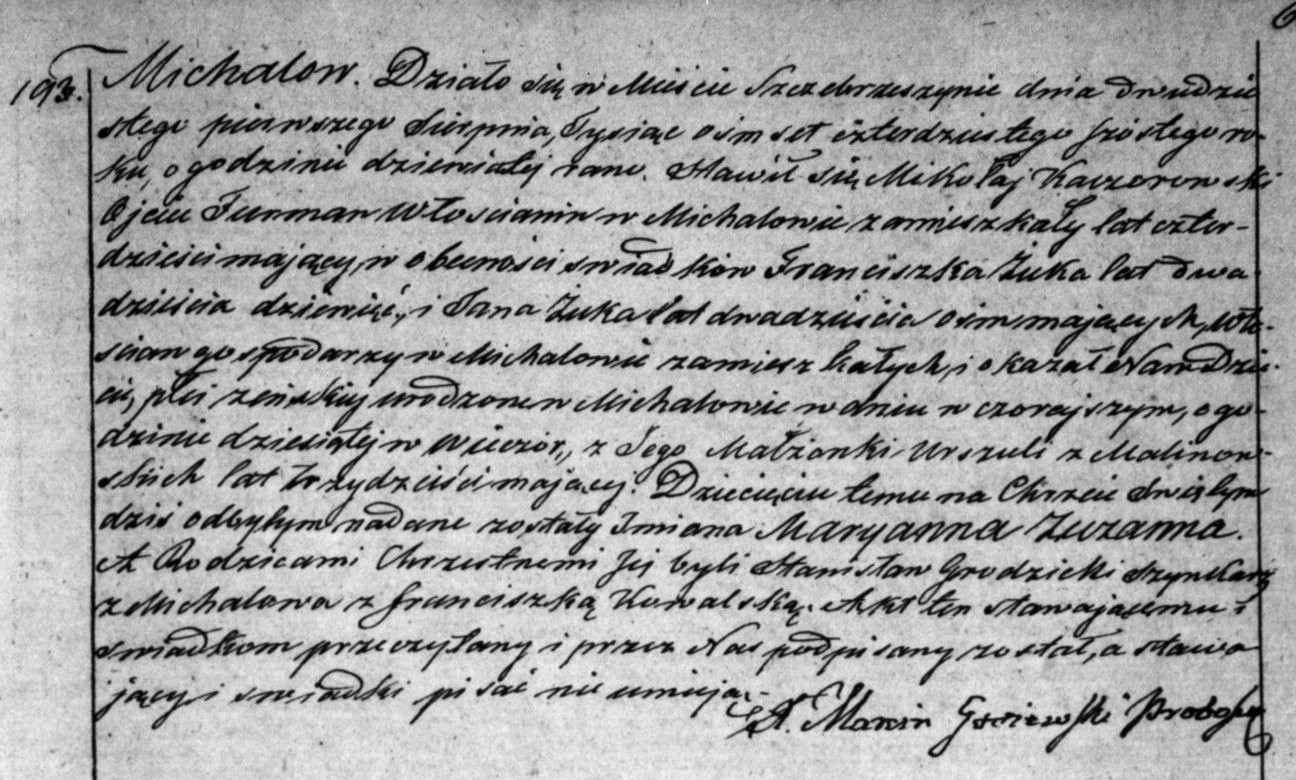 193. Michalow. Działo się w Mieście Szczebrzeszynie dnia dwudzie
stego pierwszego Sierpnia, Tysiąc ośmset czterdziestego szóstego ro-
ku, o godzinie dziewiątej rano. Stawił się Mikołaj Kaczorowski
Ojciec Furman Włościanin w Michalowie zamieszkały lat czter-
dzieści mający, w obecności swiadków Franciszka Żuka lat dwa
dzieścia dziewięć, i Jana Żuka lat dwadzieścia ośm mających, Wło-
ścian gospodarzy w Michalowie zamieszkałych, i okazał Nam Dzie-
cię, płci żeńskiej urodzone w Michalowie w dniu wczorajszym, o go-
dzinie dziesiątej w wieczór, z Jego Małżonki Urszuli z Malinow-
skich lat trzydzieści mającej. Dziecięciu temu na Chrzcie Świętym
dziś odbytym nadane zostały Imiona Maryanna Zuzanna.
A Rodzicami Chrzestnemi Jej byli Stanisław Grodzicki Szynkarz
z Michalowa z Franciszką Kowalską. Akt ten stawającemu i
swiadkom przeczytany i przez Nas podpisany został, a stawa
jący i swiadki pisać nie umieją.-
X. Marcin Proboszcz